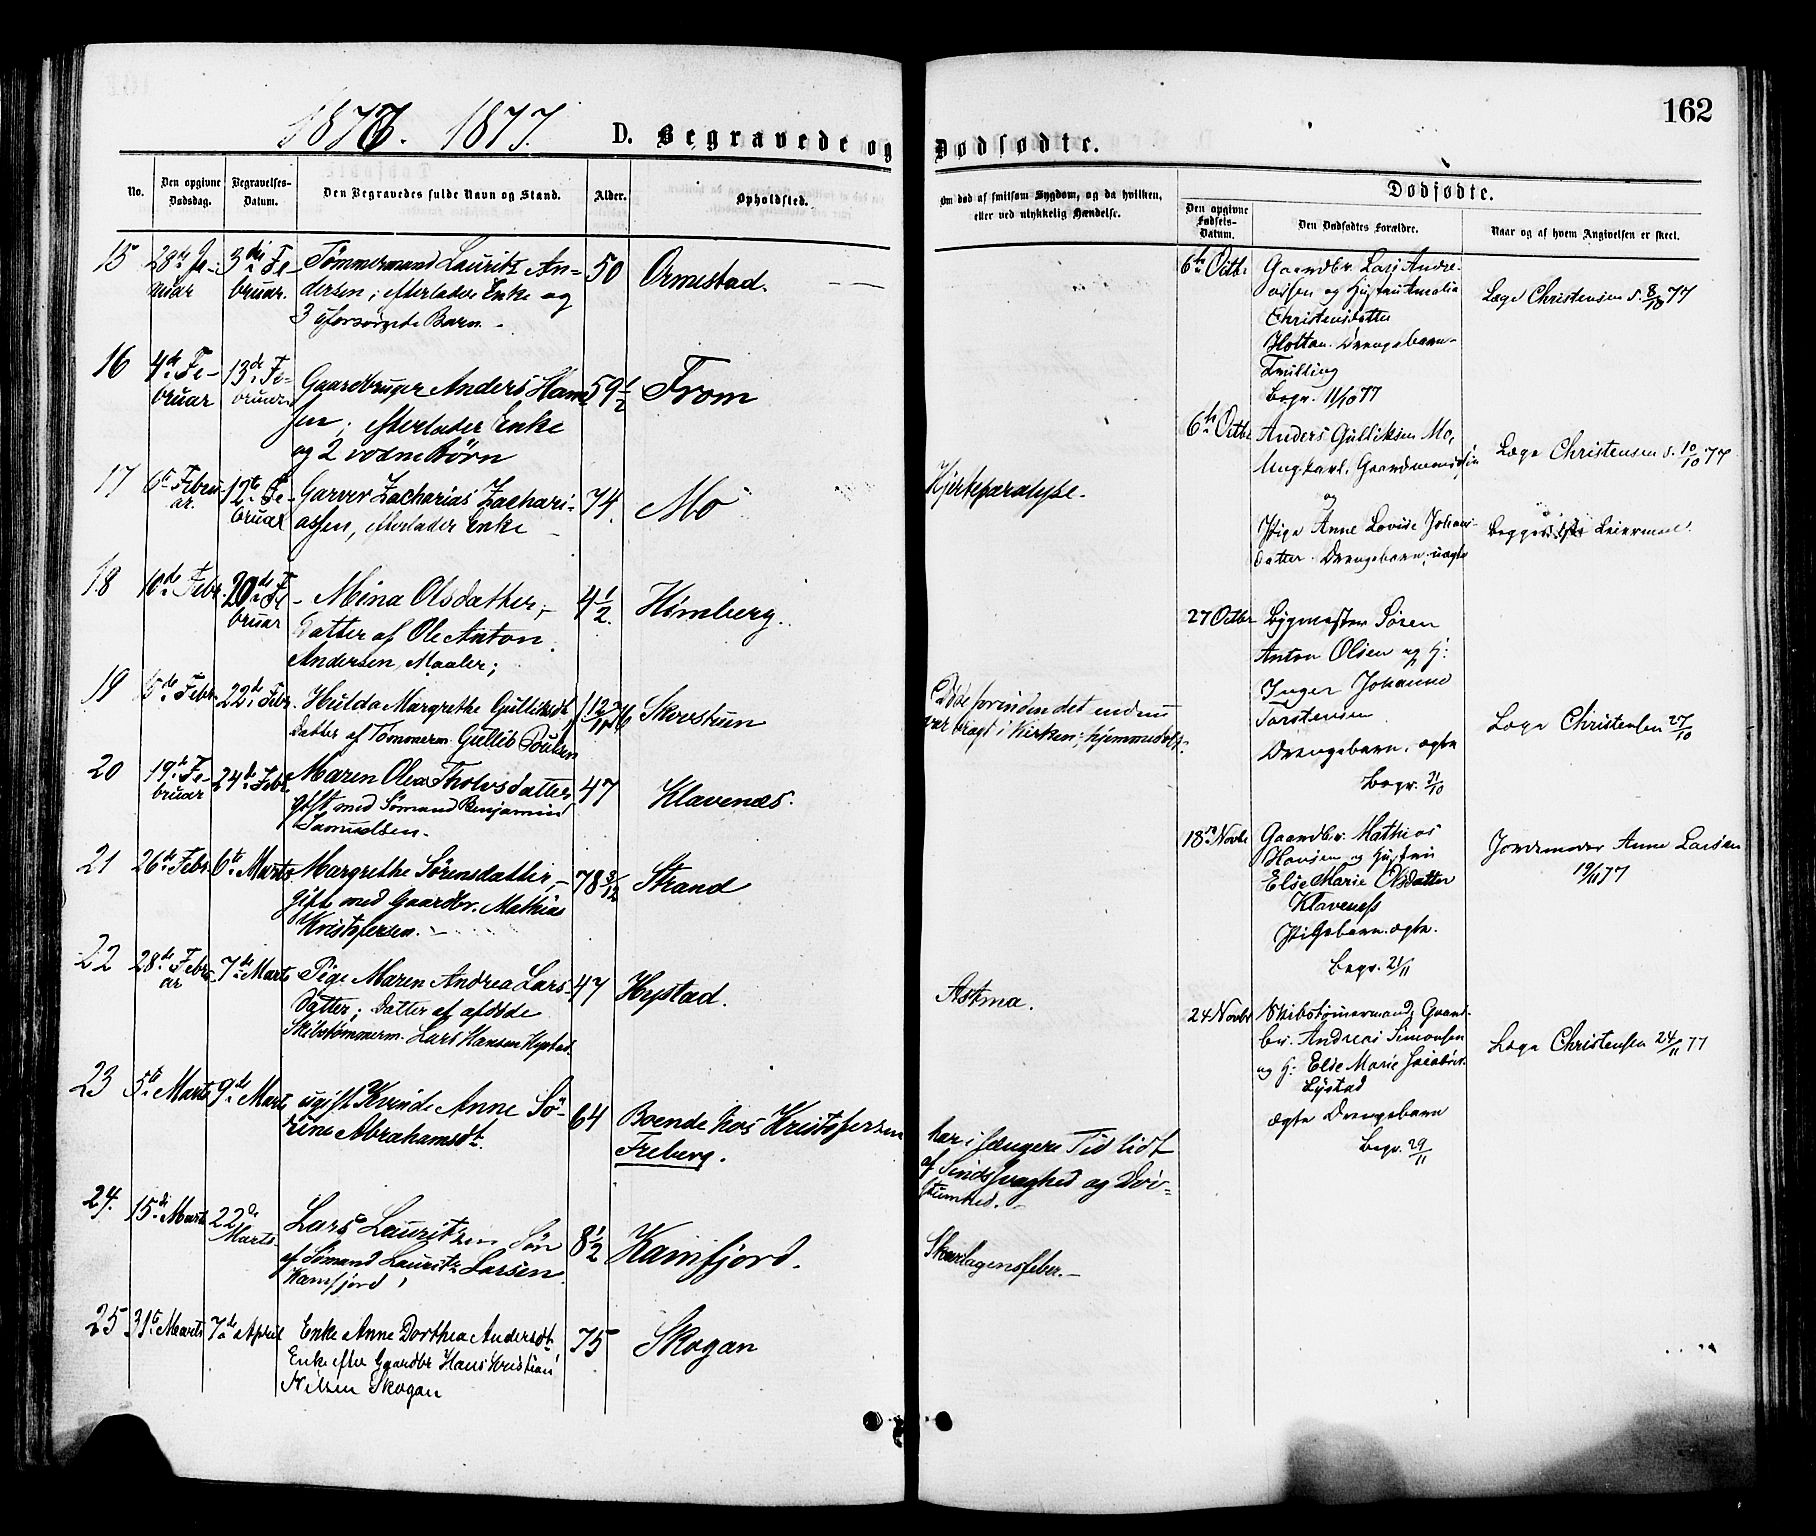 162
1876. 1877.
D. Begravede og Dødfødte.
No.
Den opgivne Dødsdag.
Begravelses-Datum.
Den Begravedes fulde Navn og Stand.
Alder.
Opholdsted.
Om død af smitsom Sygdom, og da hvilken,
eller ved ulykkelig Hændelse.
Dødfødte.
Den opgivne Fødsels-Datum.
Den Dødfødtes Forældre.
Naar og af hvem Angivelsen er skeet.
15 28de Ja- 3die Fe- Tømmermand Lauritz An- 50 Ormestad.
nuar bruar. dersen; efterlader Enke og
3 uforsørgede Børn.
16 4de Fe- 13de Fe- Gaardbruger Anders Han- 59 1/2 From
bruar bruar sen; efterlader Enke
og 2 voxne Børn
17 6te Febru- 12te Fe- Garver Zacharias Zachari- 74. Mo Hjerteparalyse.
ar. bruar assen, efterlader Enke
18 10de Febr. 20de Fe- Mina Olsdatter, 4 1/2. Himberg.
bruar Datter af Ole Anton
Andersen, Maaler;
19 15de Febr. 22de Febr. Hulda Margrethe Gulliksdt, Skovstuen
Datter af Tømmerm. Gullik Poulsen
Døde forinden det endnu
var bragt i Kirken; hjemmedøbt.
20 19de Fe- 24de Febr. Maren Olea Tholvsdatter 47 Klavenæs.
bruar gift med Sømand Benjamin
Samuelsen.
21 26de Febr. 6te Marts Margrethe Sørensdatter, 78 3/12 Strand
gift med Gaardbr. Mathias
Kristofersen.
22 28de Febru- 7de Marts Pige Maren Andrea Lars- 47 Hystad. Astma.
ar datter; Datter af afdøde
Skibstømmerm. Lars Hansen Hystad.
23 5te Marts 9de Marts ugift Kvinde Anne Sö- 64 Boende hos Kristofersen
rine Abrahamsdt. Freberg.
har i længere Tid lidt
af Sindssvaghed og Døv-
stumhed.
24. 15de Marts 22de Lars Lauritzen Søn 8 1/2 Kamfjord. Skarlagensfeber.
Marts af Sømand Lauritz Larsen
Kamfjord
25 31te Marts 7de April Enke Anne Dorthea Andersdt. 75 Skogan
Enke efter Gaardbr Hans Kristian
Nilsen Skogan
6te Octbr Gaardbr. Lars Andre-
assen og Hustru Amalia
Christensdatter
Holtan. Drengebarn
Tvilling
Begr. 11/10 77
Læge Christensen s. 8/10 77
6te Octbr Anders Gulliksen Mo,
Ungkarl, Gaardmandssøn
og
Pige Anne Lovise Johans-
datter. Drengebarn, uægte
Læge Christensen s. 10/10 77.
Begges Leiermaal.
27 Octbr Bygmester Søren
Anton Olsen og H:
Inger Johanne
Torstensen
Drengebarn, ægte
Begr. 31/10
Læge Christensen 27/10
18de Novbr Gaardbr. Mathias
Hansen og Hustru
Else Marie Olsdatter
Klaveness
Pigebarn. ægte.
Begr. 21/11
Jordemoder Anne Larsen
19/11 77
24 Novbr Skibstømmermand, Gaard-
br. Andreas Simonsen
og H: Else Marie Jacobsd.
Hystad
ægte Drengebarn
Begr. 29/11
Læge Christensen 24/11 77